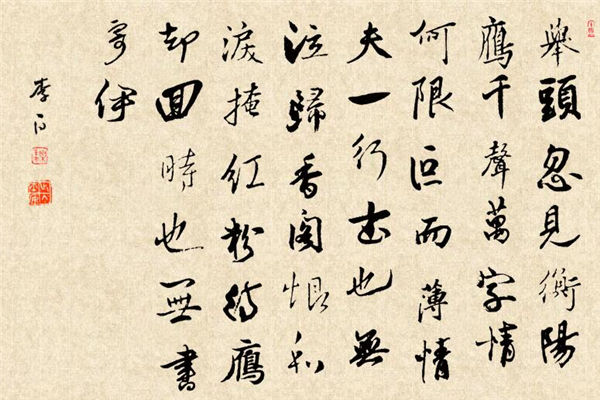 舉頭忽見衡陽
鷹千聲萬字情
何限叵而薄情
夫一行書也無
泣歸香閣恨和
淚掩紅粉待鷹
却回時也無書
寄伊
李白